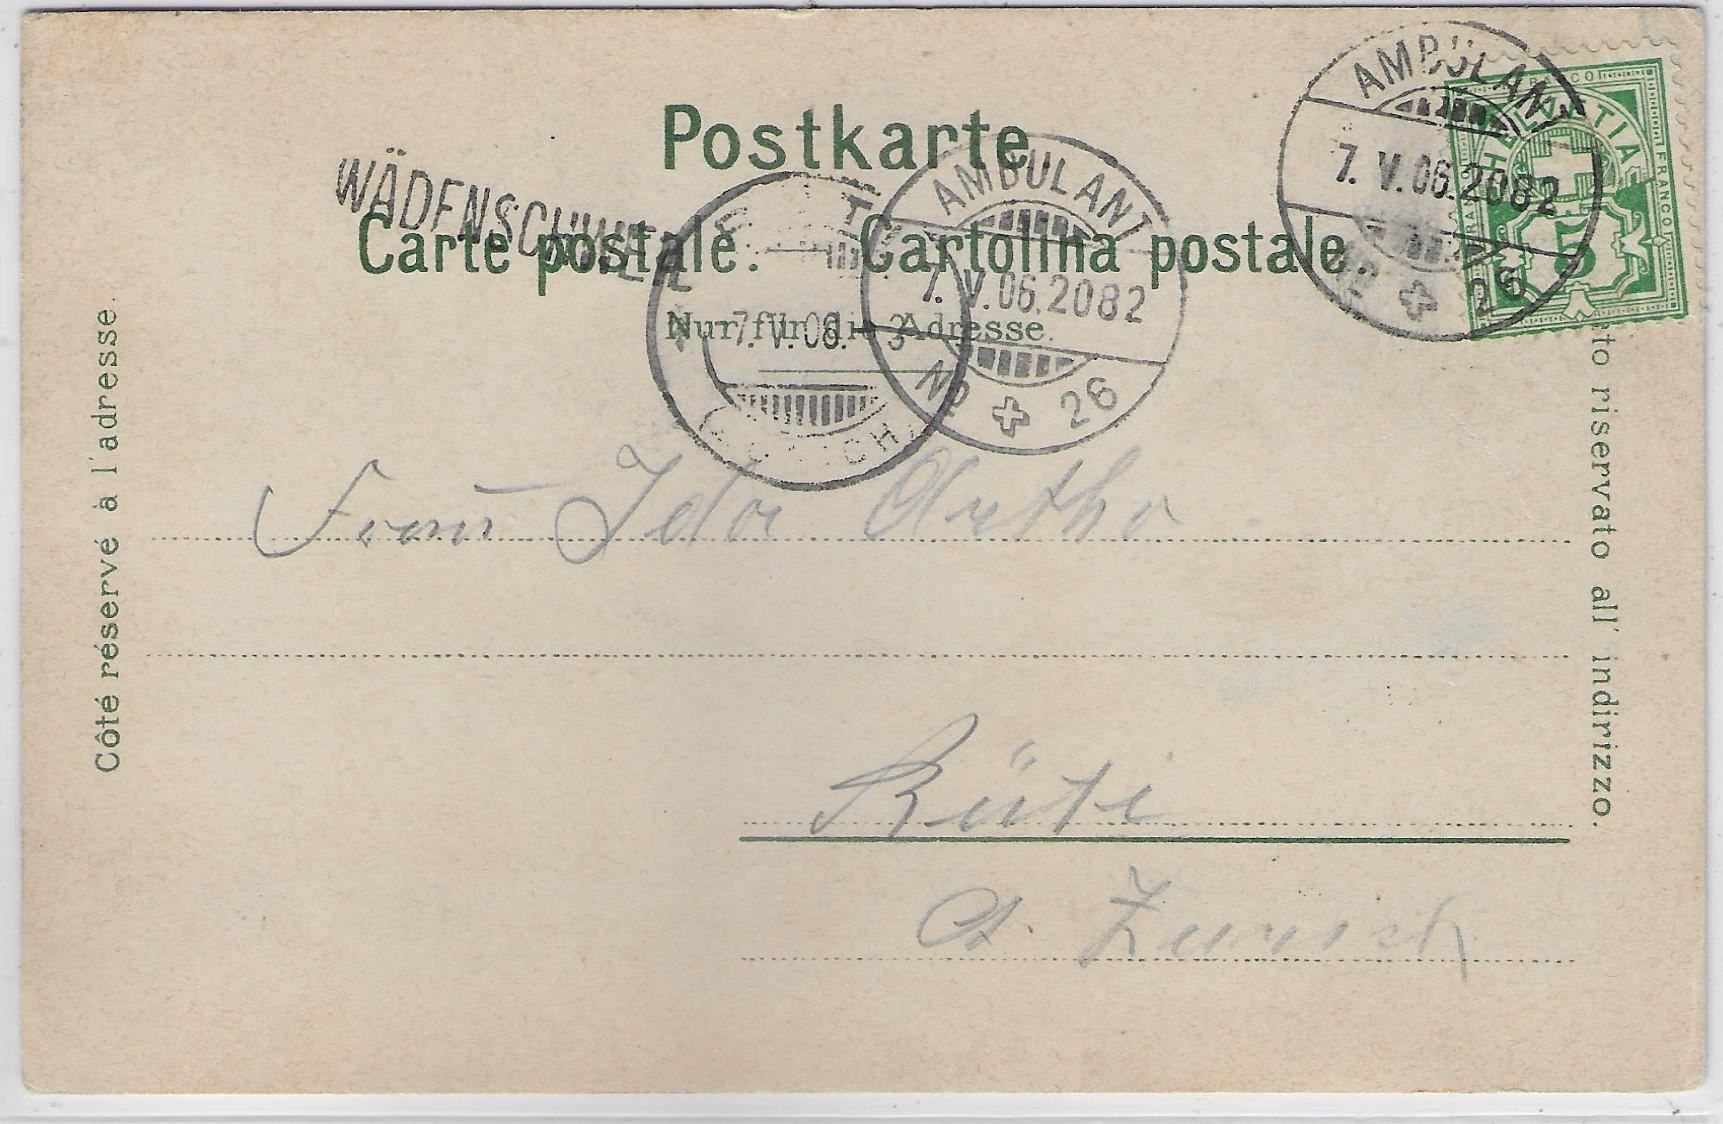 Postkarte
Carte postale. — Cartolina postale.
Nur für die Adresse.
WÄDENSCHWEIL
AMBULANT
7. V. 06. 2082
No 26
AMBULANT
7. V. 06. 2082
No 26
7. V. 06.
HELVETIA
FRANCO
5
Côté réservé à l'adresse.
riservato all' indirizzo.
Frau Ida Artho
Rüti
Ct. Zürich